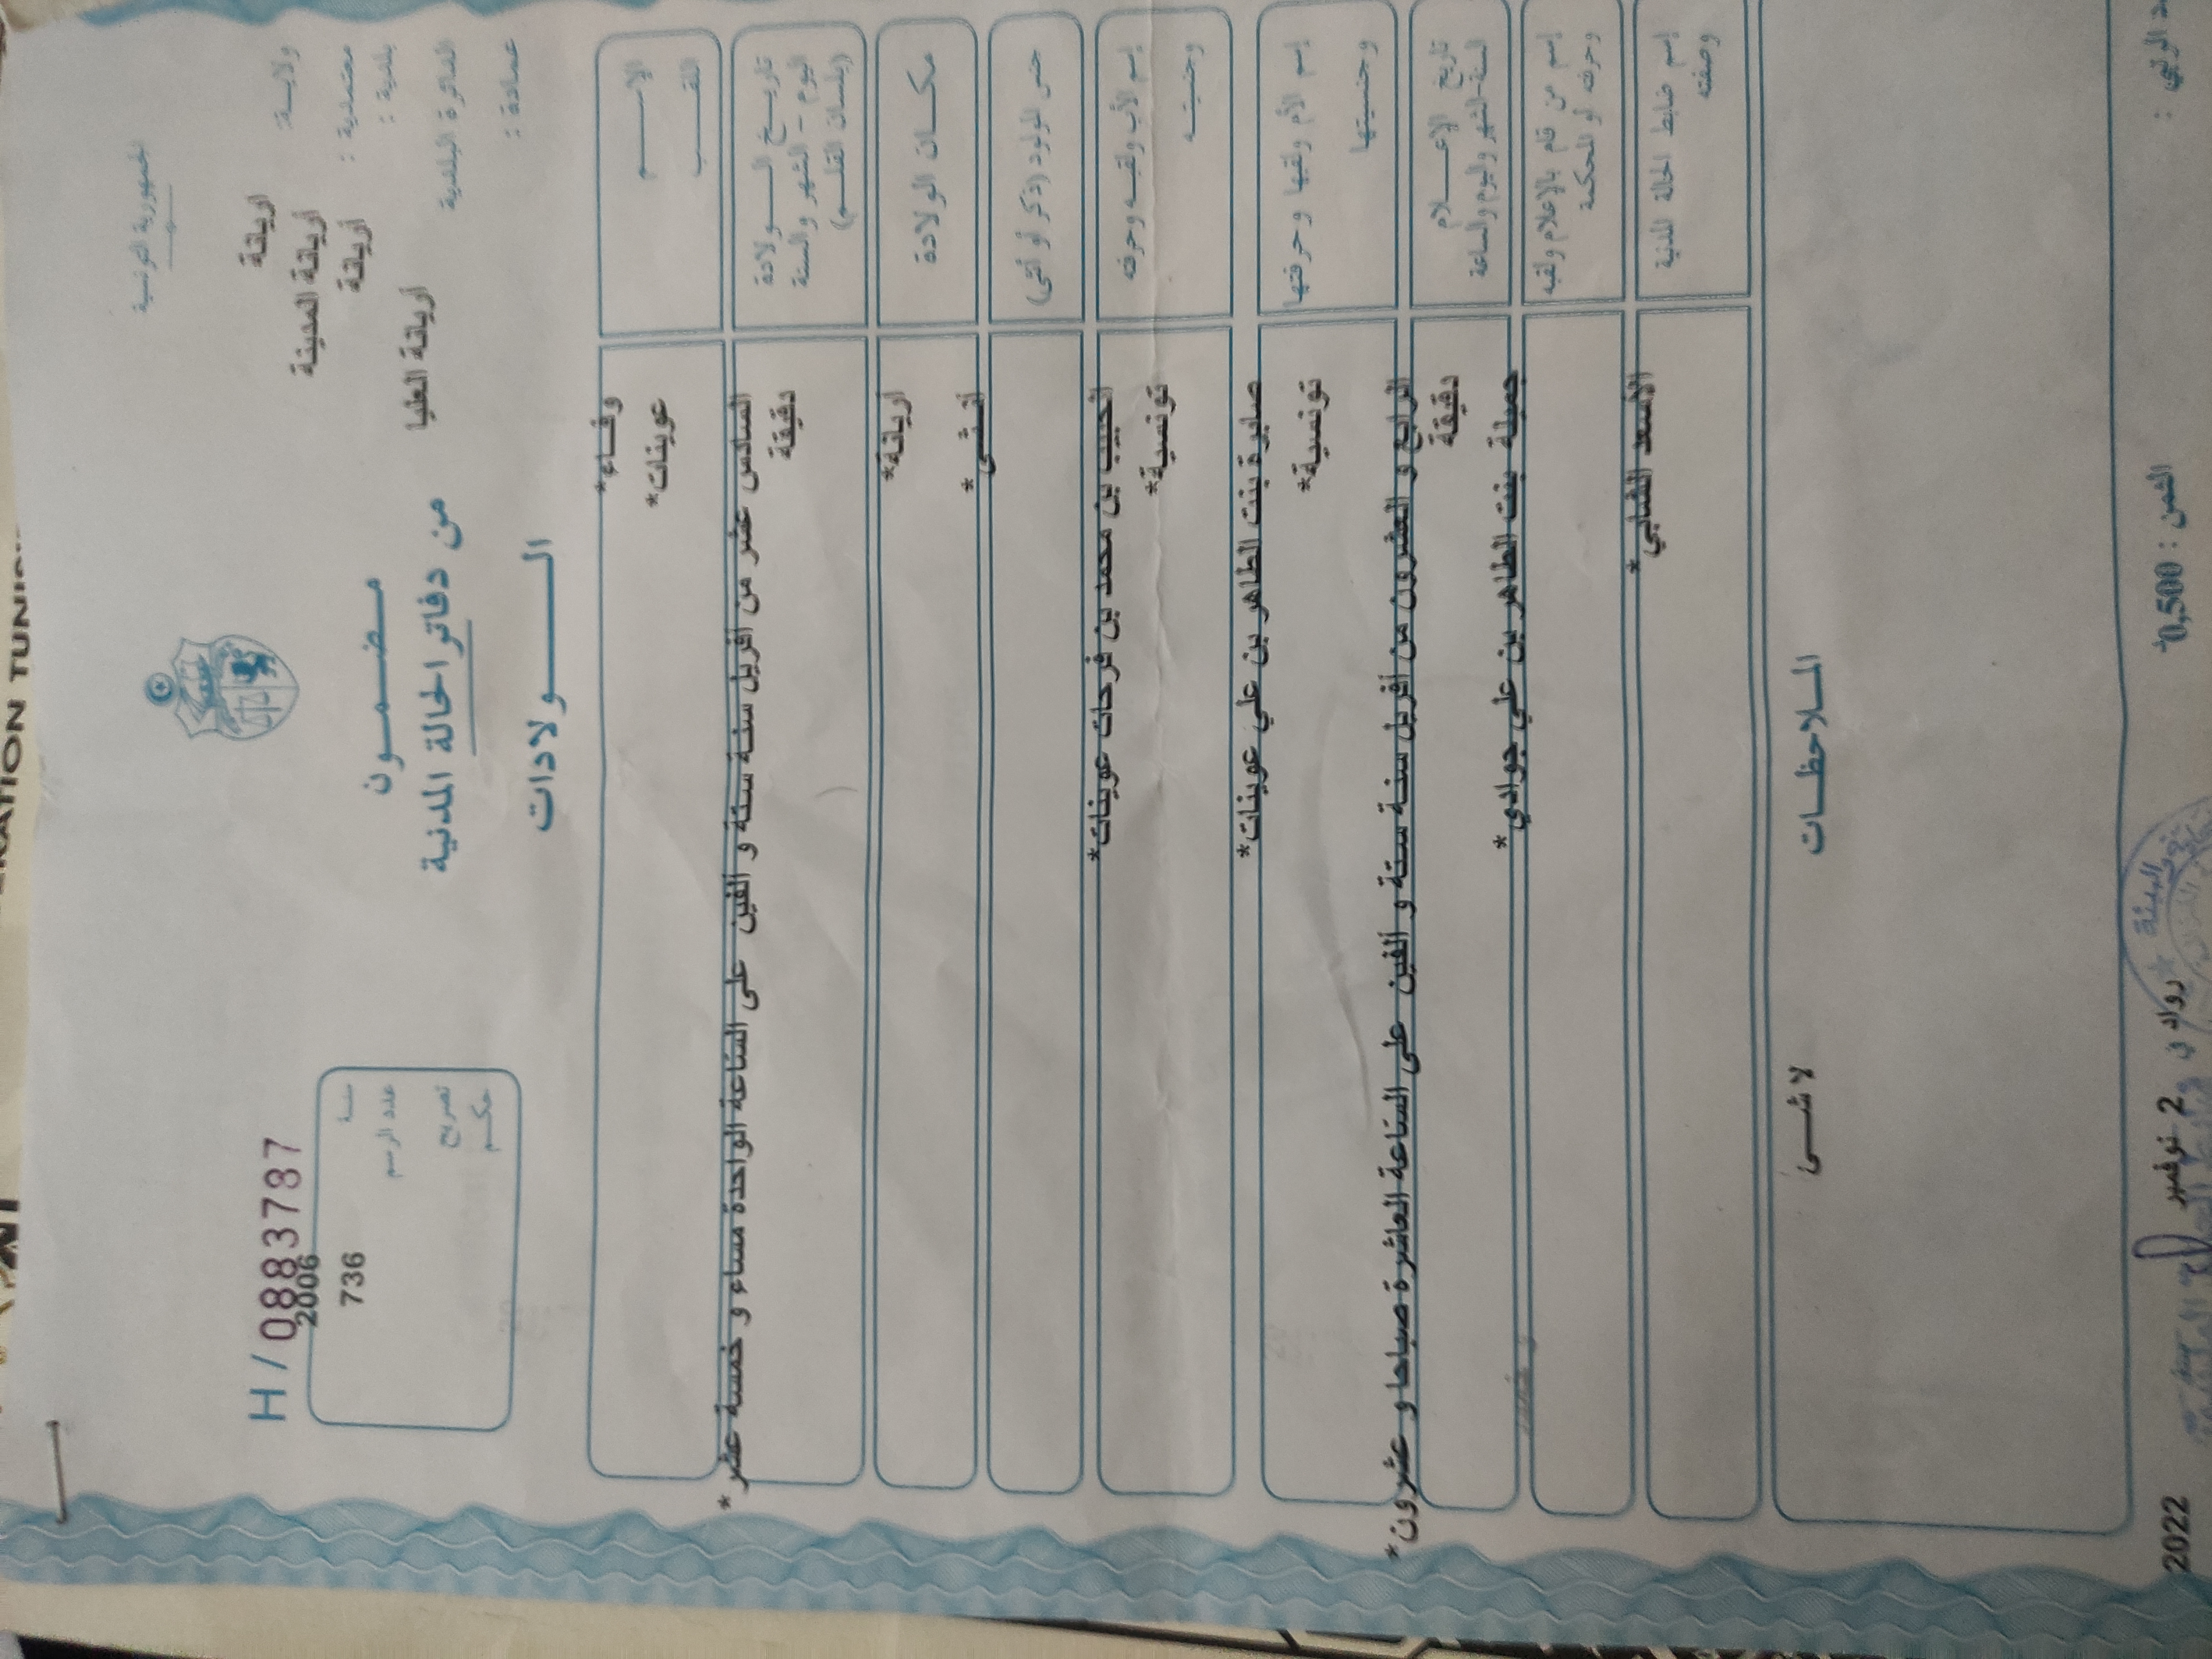 الجمهورية التونسية
ولاية: اريانة
معتمدية : أريانة المدينة
بلدية : أريانة
الدائرة البلدية أريانة العليا
عمادة :
H / 0883787
سنة 2006
عدد الرسم 736
تصريح
حكم
مضمون
من دفاتر الحالة المدنية
الولادات
الإسم وفاء*
اللقب عوينات*
تاريخ الولادة
اليوم - الشهر والسنة
(بلسان القلم)
السادس عشر من أفريل سنة ستة و ألفين على الساعة الواحدة مساء و خمسة عشر *
دقيقة
مكان الولادة أريانة*
جنس المولود (ذكر أو أنثى) أنثى *
إسم الأب ولقبه وحرفته الحبيب بن محمد بن فرحات عوينات*
وجنسيته تونسية*
إسم الأم ولقبها وحرفتها صابرة بنت الطاهر بن علي عوينات*
وجنسيتها تونسية*
تاريخ الإعلام
السنة-الشهر واليوم والساعة
الرابع و العشرون من أفريل سنة ستة و ألفين على الساعة العاشرة صباحا و عشرون*
دقيقة
إسم من قام بالإعلام ولقبه
وحرفته أو المحكمة
جميلة بنت الطاهر بن علي جوادي *
إسم ضابط الحالة المدنية
وصفته
الأسعد الشابي *
الملاحظات
لا شئ
الثمن : 0,500
رواد في 2 نوفمبر 2022